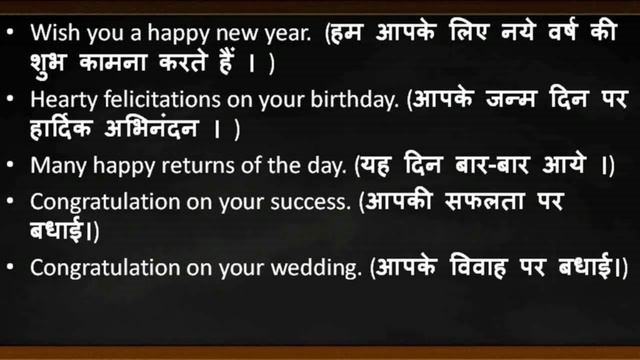 • Wish you a happy new year. (हम आपके लिए नये वर्ष की
शुभ कामना करते हैं । )
• Hearty felicitations on your birthday. (आपके जन्म दिन पर
हार्दिक अभिनंदन । )
• Many happy returns of the day. (यह दिन बार-बार आये ।)
• Congratulation on your success. (आपकी सफलता पर
बधाई।)
• Congratulation on your wedding. (आपके विवाह पर बधाई।)